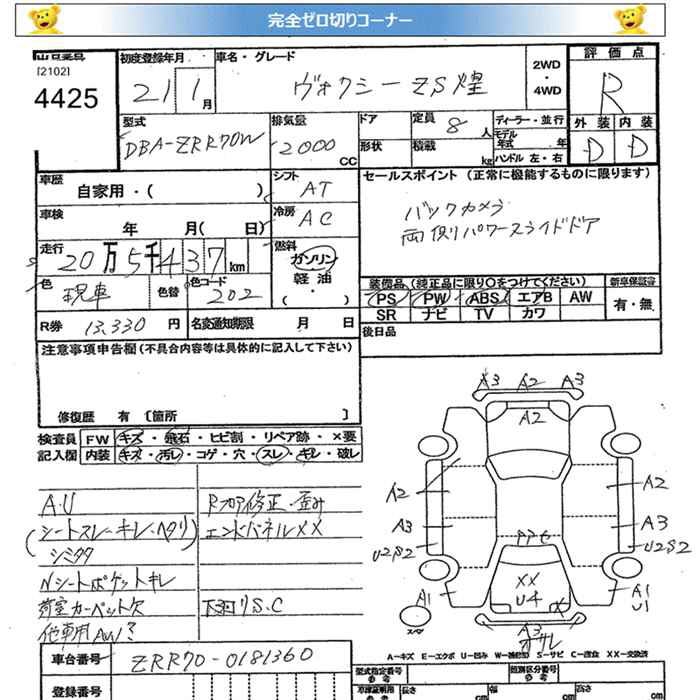 完全ゼロ切りコーナー
[2102]
4425
初度登録年月
21/1月
車名・グレード
ヴォクシーZS煌
2WD
・
4WD
評価点
R
型式
DBA-ZRR70W
排気量
2000
CC
ドア
形状
定員 8 人
積載 kg
ディーラー・並行
モデル年式 年
ハンドル 左・右
外装 内装
D D
車歴
自家用・( )
シフト
AT
車検
年 月( 日)
冷房
AC
走行
20万5千437km
燃料
ガソリン
軽油
・( )
色
現車
色替
色コード
202
R券 13,330 円
名変通知期限 月 日
セールスポイント (正常に機能するものに限ります)
バックカメラ
両側パワースライドドア
装備品(純正品に限り○をつけてください)
新車保証書
PS PW ABS エアB AW
有・無
SR ナビ TV カワ
後日品
注意事項申告欄(不具合内容等は具体的に記入して下さい)
修復歴 有 〔箇所 〕
検査員
記入欄
FW キズ・飛石・ヒビ割・リペア跡・×要
内装 キズ・汚レ・コゲ・穴・スレ・キレ・破レ
A.U
(シートスレ・キレ・ヘタリ)
シミタタ
Nシートポケットキレ
荷室カーペット欠
他車用AW?
Rフロア修正・歪み
エンドパネルXX
下回りS.C
A3 A2 A3
A2
A2 A2
A3 A3
U2S2 U2S2
XX
U4
X
A1 A1
U1
スペア
A3
オサレ
A−キズ E−エクボ U−凹み W−補修跡 S−サビ C−腐食 XX−交換済
車台番号
ZRR70-0181360
登録番号
型式指定番号
参考
類別区分番号
参考
長さ cm
幅 cm
高さ cm